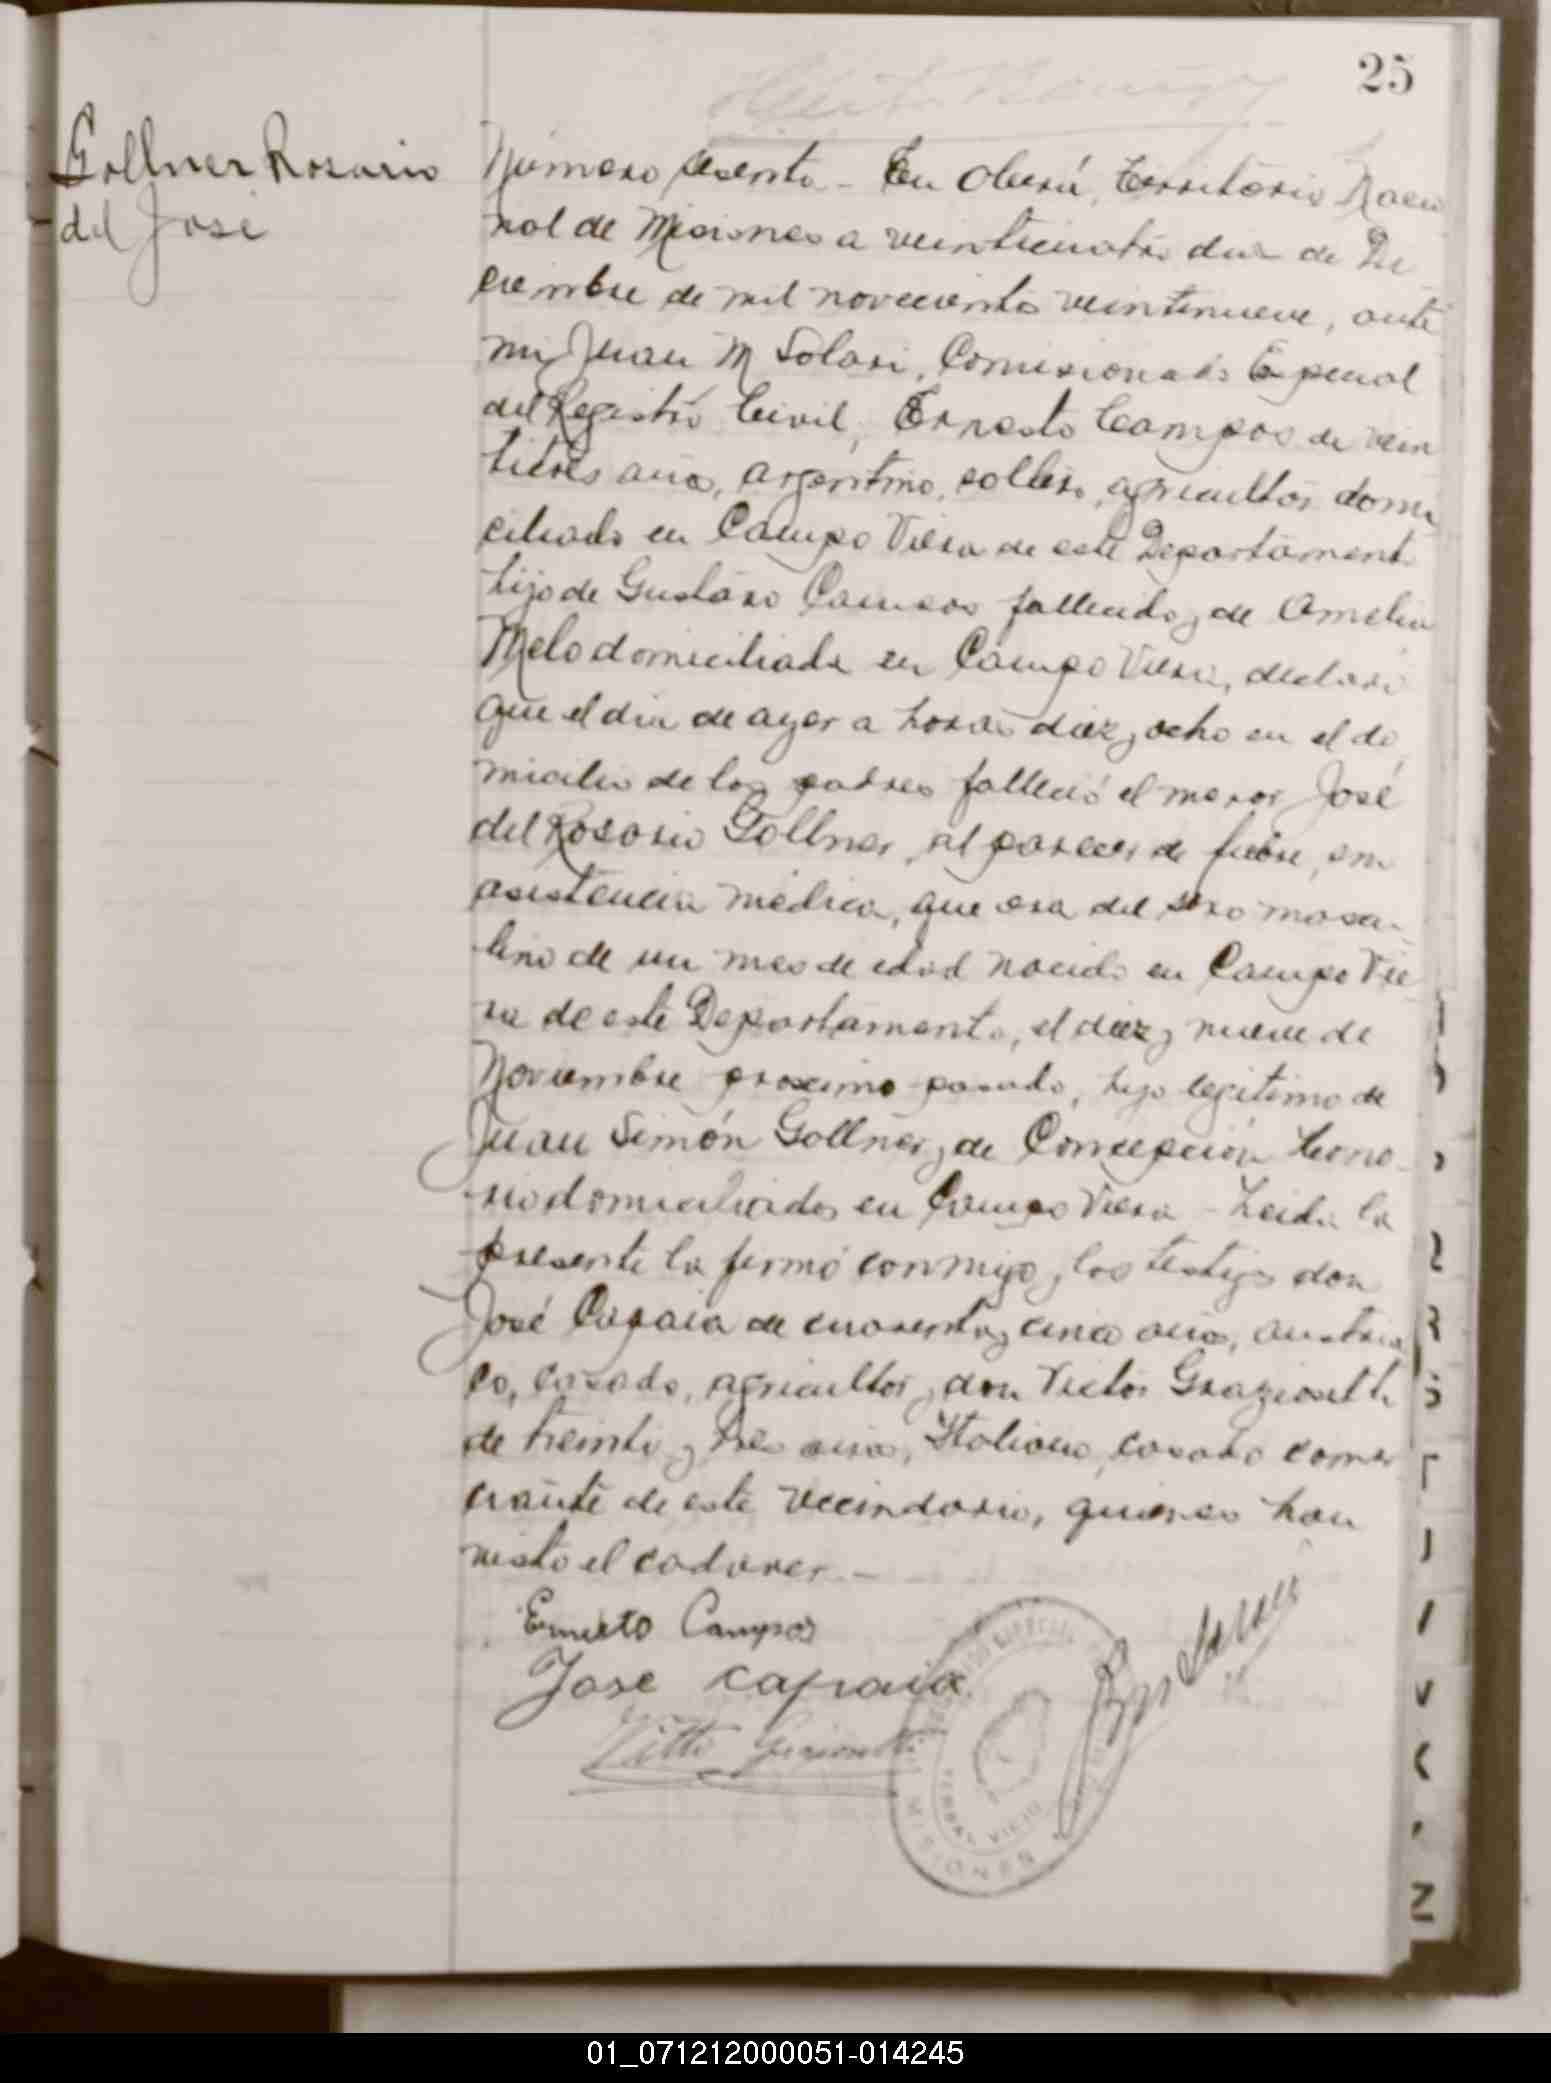 25
Gollner Rosario
del José
Número sesenta - En Oberá, Territorio Nacio
nal de Misiones a veinticuatro dias de Di
ciembre de mil novecientos veintinueve, ante
mi, Juan M Solari, Comisionado Especial
del Registro Civil, Ernesto Campos de vein
titres años, argentino, soltero, agricultor domi
ciliado en Campo Viera de este Departamento
hijo de Gustavo Campos fallecido y de Amelia
Melo domiciliada en Campo Viera, declaró
que el dia de ayer a horas diez y ocho en el do
micilio de los padres falleció el menor José
del Rosario Gollner, al parecer de fiebre, sin
asistencia médica, que era del sexo mascu-
lino de un mes de edad nacido en Campo Vie
ra de este Departamento, el diez y nueve de
Noviembre proximo pasado, hijo legitimo de
Juan Simón Gollner y de Concepción
domiciliados en Campo Viera - Leida la
presente la firmó conmigo y los testigos don
José Capaia de cuarenta y cinco años, austria
co, casado, agricultor y don Victor Graziosetti
de treinta y tres años, Italiano, casado comer
ciante de este vecindario, quienes han
visto el cadaver. -
Ernesto Campos
Jose Capraia
MISIONES
YERBAL VIEJO
01_071212000051-014245